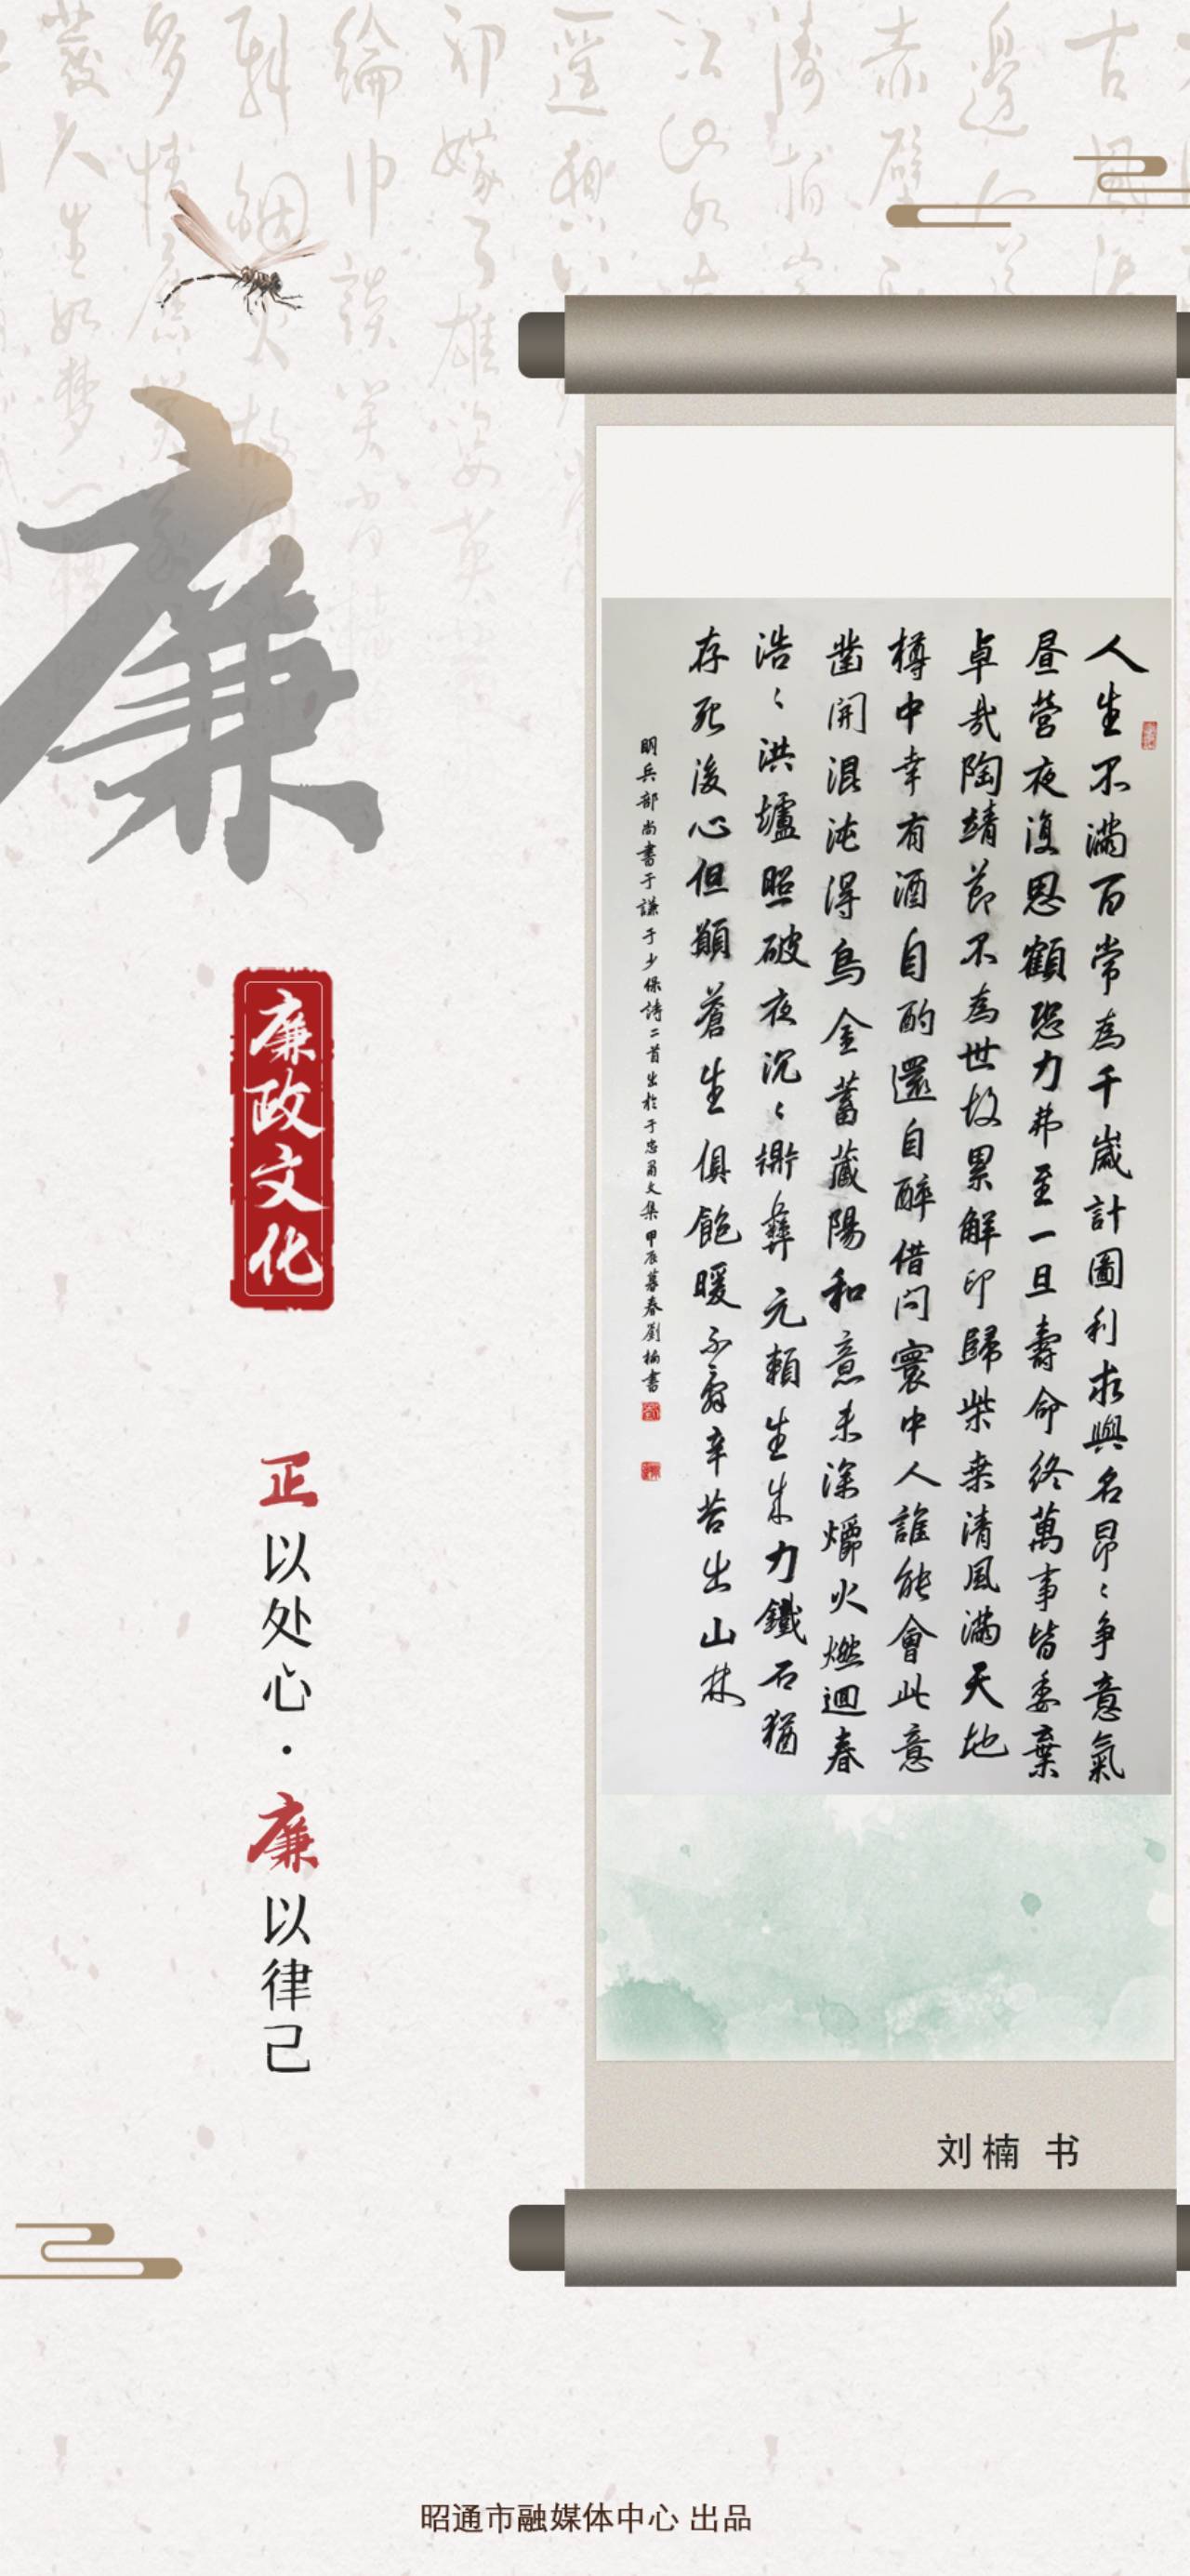 廉
廉政文化
正以处心·廉以律己
人生不滿百常為千歲計圖利求與名昂〻爭意氣
昼營夜復思顧恐力弗至一旦壽命終萬事皆委棄
卓哉陶靖節不為世故累解印歸柴桑清風滿天地
樽中幸有酒自酌還自醉借問寰中人誰能會此意
凿開混沌得烏金蓄藏陽和意未深爝火燃迴春
浩〻洪爐照破夜沉〻鼎彝元賴生成力鐵石猶
存死後心但願蒼生俱飽暖不辭辛苦出山林
明兵部尚書于謙于少保詩二首出於于忠肅文集甲辰暮春劉楠書
刘楠 书
昭通市融媒体中心 出品